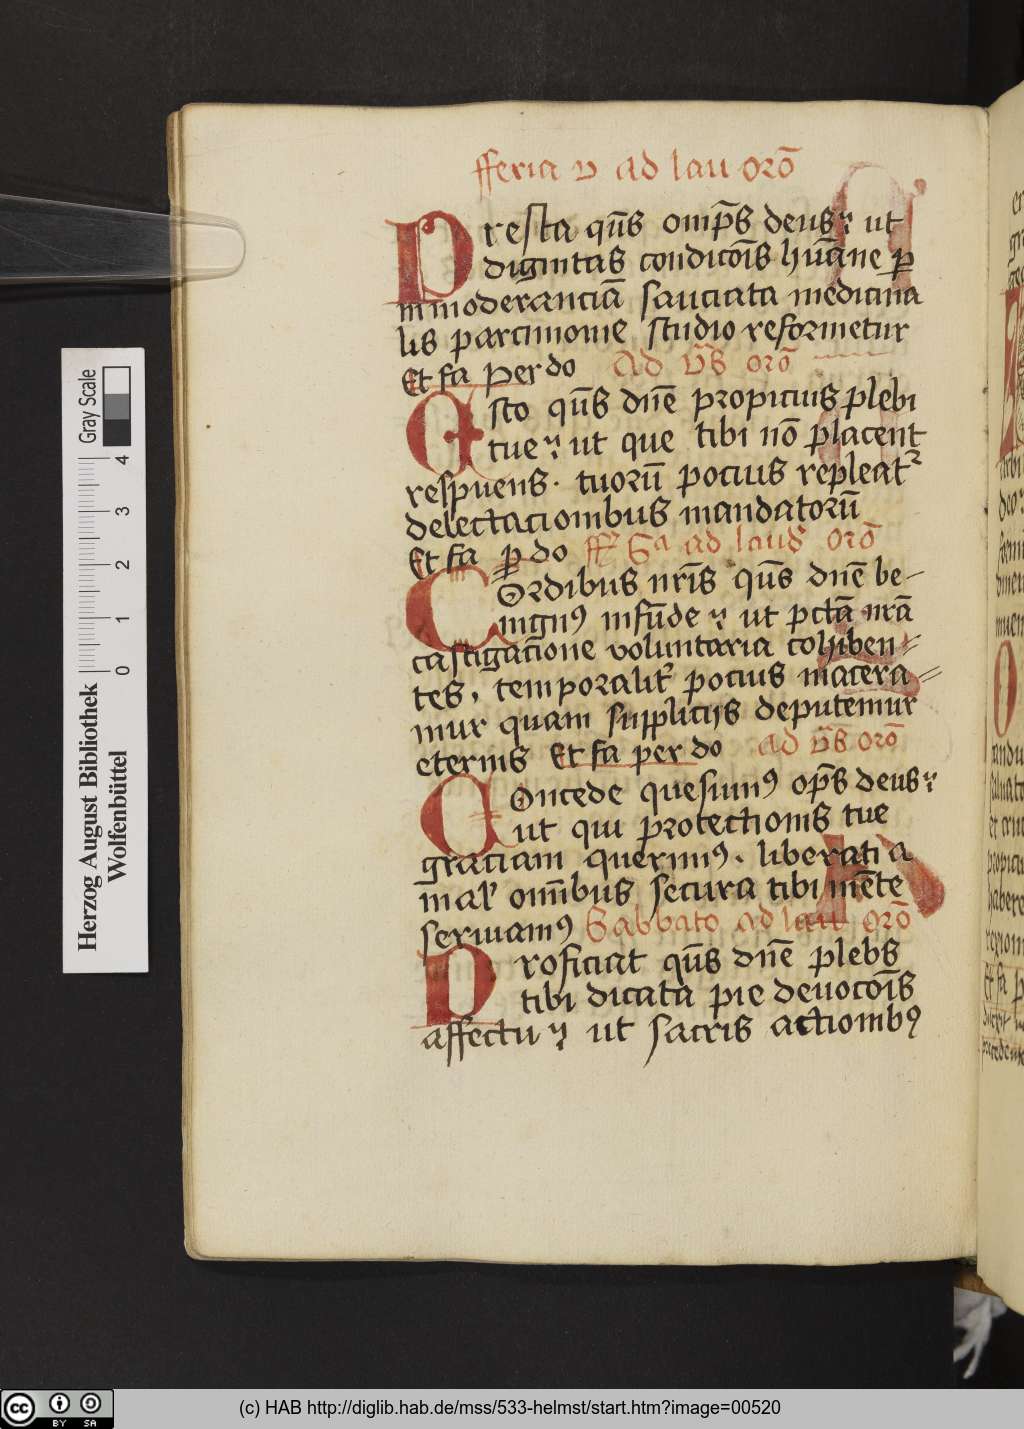 fferia v ad lau orō
Presta qūs omp̄s deus ut
dignitas condicōis hūane ꝑ
inmoderanciā sauciata medicina
lis parcimonie studio reformetur
Et fa per do Ad vr̄s orō
Esto qūs dn̄e propicius plebi
tue ut que tibi nō placent
respuens · tuorū pocius repleatr
delectacionibus mandatorū
Et fa ꝑ do ff Sa ad laud orō
COrdibus nr̄is qūs dn̄e be-
nignꝰ infūde ut pctā nr̄a
castigacione voluntaria cohiben-
tes, temporalit pocius macera-
mur quam supplicijs deputemur
eternis Et fa per do ad vr̄s orō
COncede quesumꝰ op̄s deus
ut qui protectionis tue
graciam querimꝰ. liberati a
mal omībus secura tibi mēte
seruiamꝰ Sabbato ad laud orō
Proficiat qūs dn̄e plebs
tibi dicata pie deuocōis
affectu ut sacris actionibꝰ
Gray Scale
4 3 2 1 0
Herzog August Bibliothek
Wolfenbüttel
cc BY SA
(c) HAB http://diglib.hab.de/mss/533-helmst/start.htm?image=00520